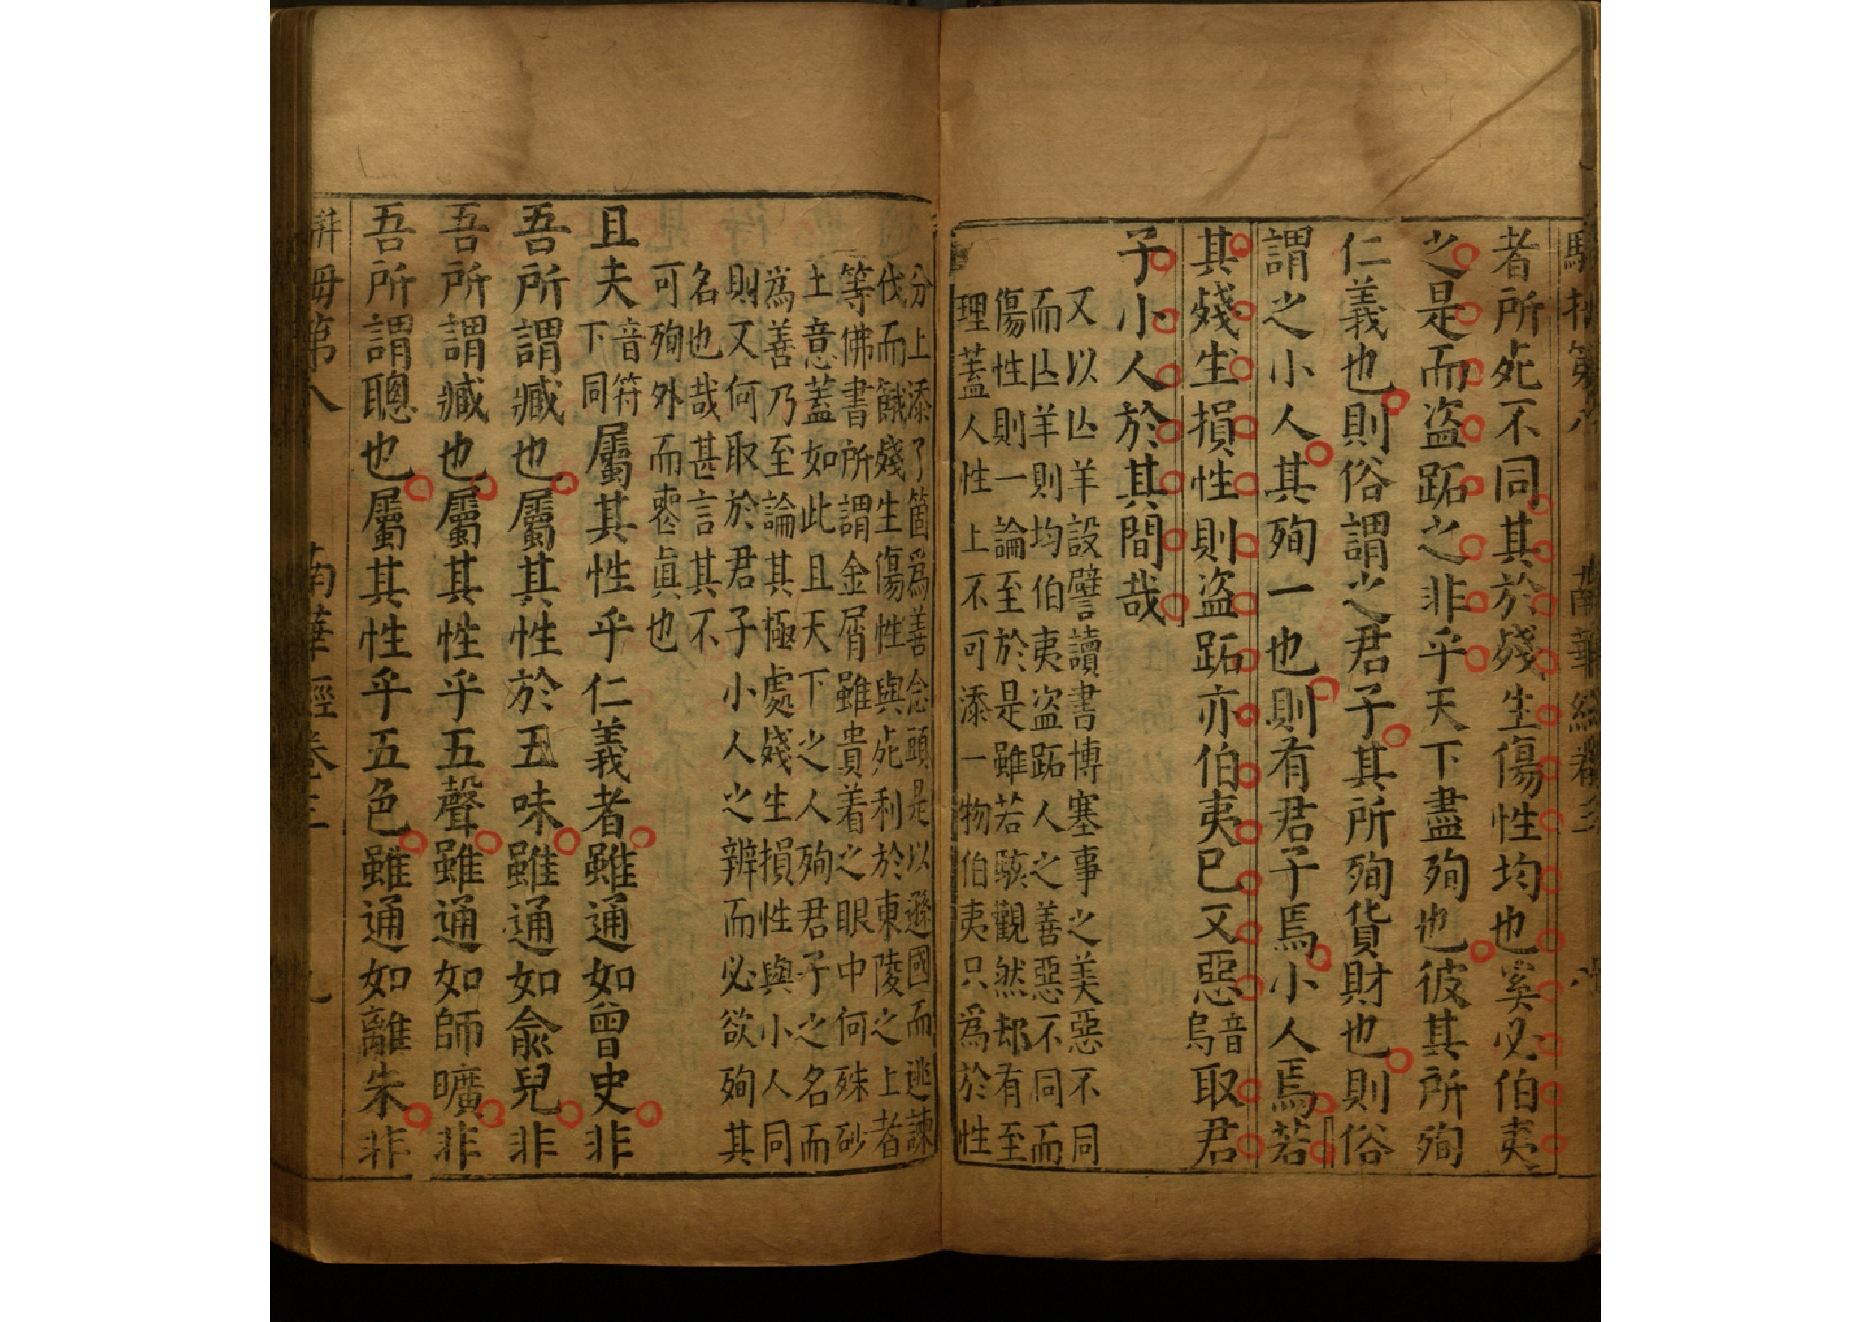 者所死不同其於殘生傷性均也奚必伯夷
之是而盜跖之非乎天下盡殉也彼其所殉
仁義也則俗謂之君子其所殉貨財也則俗
謂之小人其殉一也則有君子焉小人焉若
其殘生損性則盜跖亦伯夷已又惡音烏取君
子小人於其間哉
又以亾羊設譬讀書博塞事之美惡不同
而亾羊則均伯夷盜跖人之善惡不同而
傷性則一論至於是雖若駭觀然却有至
理蓋人性上不可添一物伯夷只為於性
分上添了箇為善念頭是以遜國而逃諫
伐而餓殘生傷性與死利於東陵之上者
等佛書所謂金屑雖貴着之眼中何殊砂
土意蓋如此且天下之人殉君子之名而
為善乃至論其極處殘生損性與小人同
則又何取於君子小人之辨而必欲殉其
名也哉甚言其不
可殉外而喪眞也
且夫音符下同屬其性乎仁義者雖通如曾史非
吾所謂臧也屬其性於五味雖通如俞兒非
吾所謂臧也屬其性乎五聲雖通如師曠非
吾所謂聰也屬其性乎五色雖通如離朱非